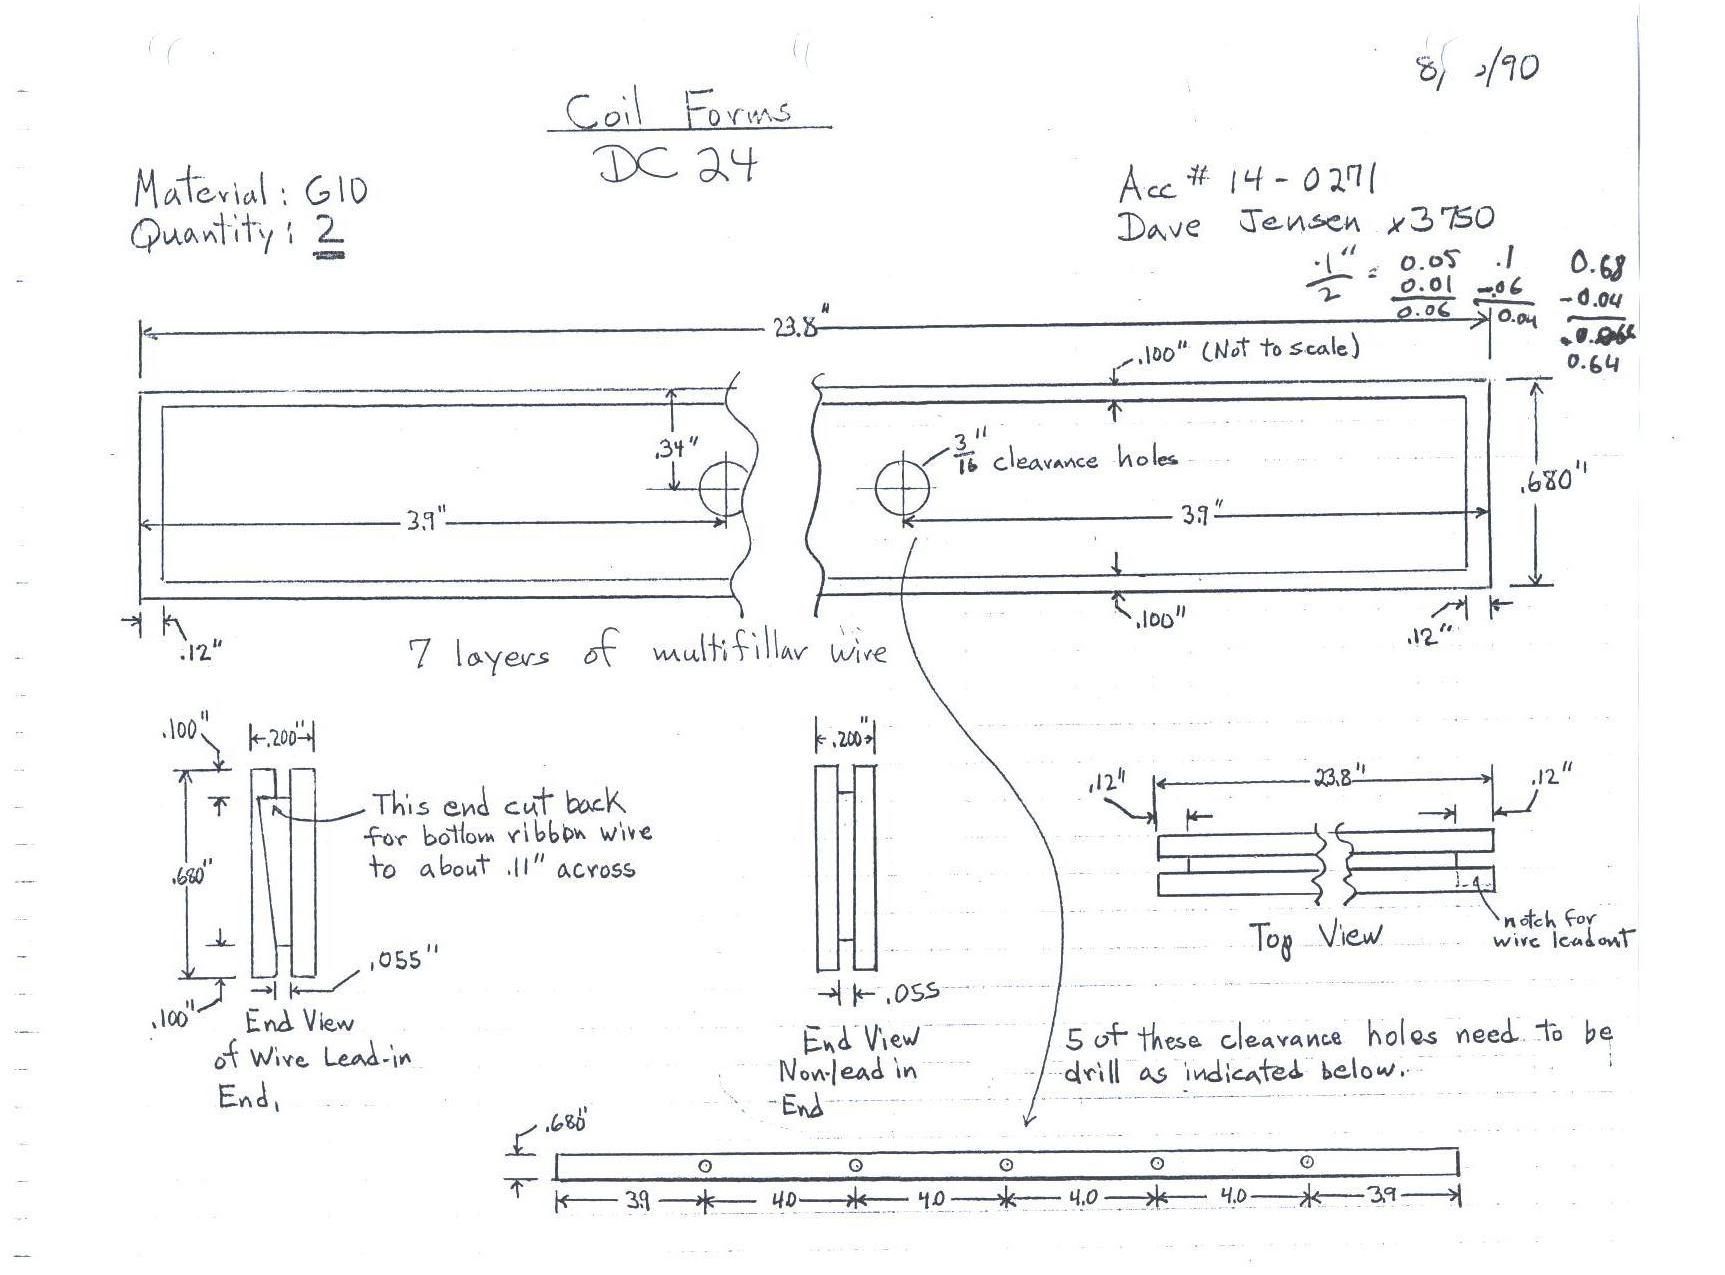 8/ /90
Coil Forms
DC 24
Material: G10
Quantity: 2
Acc # 14-0271
Dave Jensen x3750
.1"/2 = 0.05
0.01
0.06
.1
-.06
0.04
0.68
-0.04
0.64
23.8"
.100" (Not to scale)
.34"
3/16" clearance holes
.680"
3.9"
3.9"
.100"
.12"
.12"
7 layers of multifillar wire
.100"
.200"
This end cut back
for bottom ribbon wire
to about .11" across
.680"
.055"
.100"
End View
of Wire Lead-in
End.
.200"
.055
End View
Non-lead in
End
.12"
23.8"
.12"
Top View
notch for
wire leadout
5 of these clearance holes need to be
drill as indicated below.
.680"
3.9 4.0 4.0 4.0 4.0 3.9